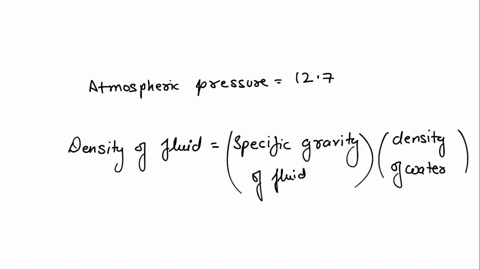 Atmospheric pressure = 12.7
Density of fluid = (Specific gravity of fluid) (density of water)